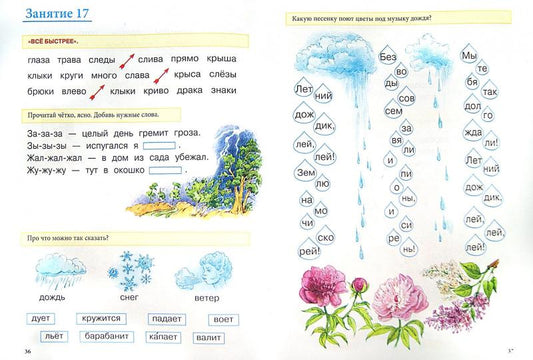 Занятие 17
«ВСЁ БЫСТРЕЕ».
глаза трава следы слива прямо крыша
клыки круги много слава крыса слёзы
брюки влево клыки криво драка знаки
Прочитай чётко, ясно. Добавь нужные слова.
За-за-за — целый день гремит гроза.
Зы-зы-зы — испугался я
Жал-жал-жал — в дом из сада убежал.
Жу-жу-жу — тут в окошко
Про что можно так сказать?
дождь снег ветер
дует кружится падает воет
льёт барабанит капает валит
36
Какую песенку поют цветы под музыку дождя?
Лет
ний
дож
дик,
лей,
лей!
Зем
лю
на
мо
чи
ско
рей!
Без
во
ды
сов
сем
за
вя
ли
и
ли
о
ны,
и
си
ре
нь!
Мы
те
бя
так
дол
го
жда
ли!
Лет
ний
дож
дик,
лей,
лей,
лей!